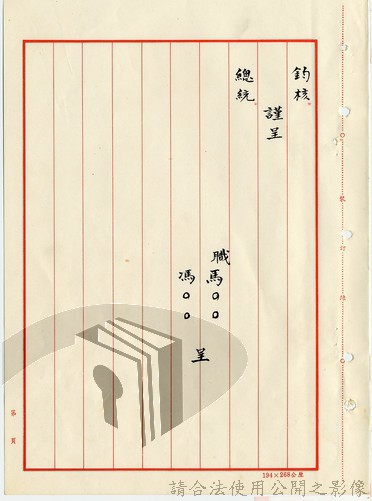 鈞核。
謹呈
總統。
職馬○○
馮○○
呈
裝訂線
第 頁
194×268公厘
請合法使用公開之影像